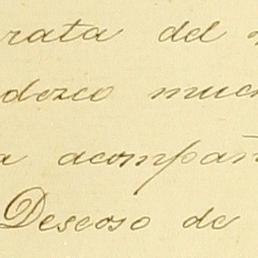 rata del
dezco muc
a acompañ
Deseoso de